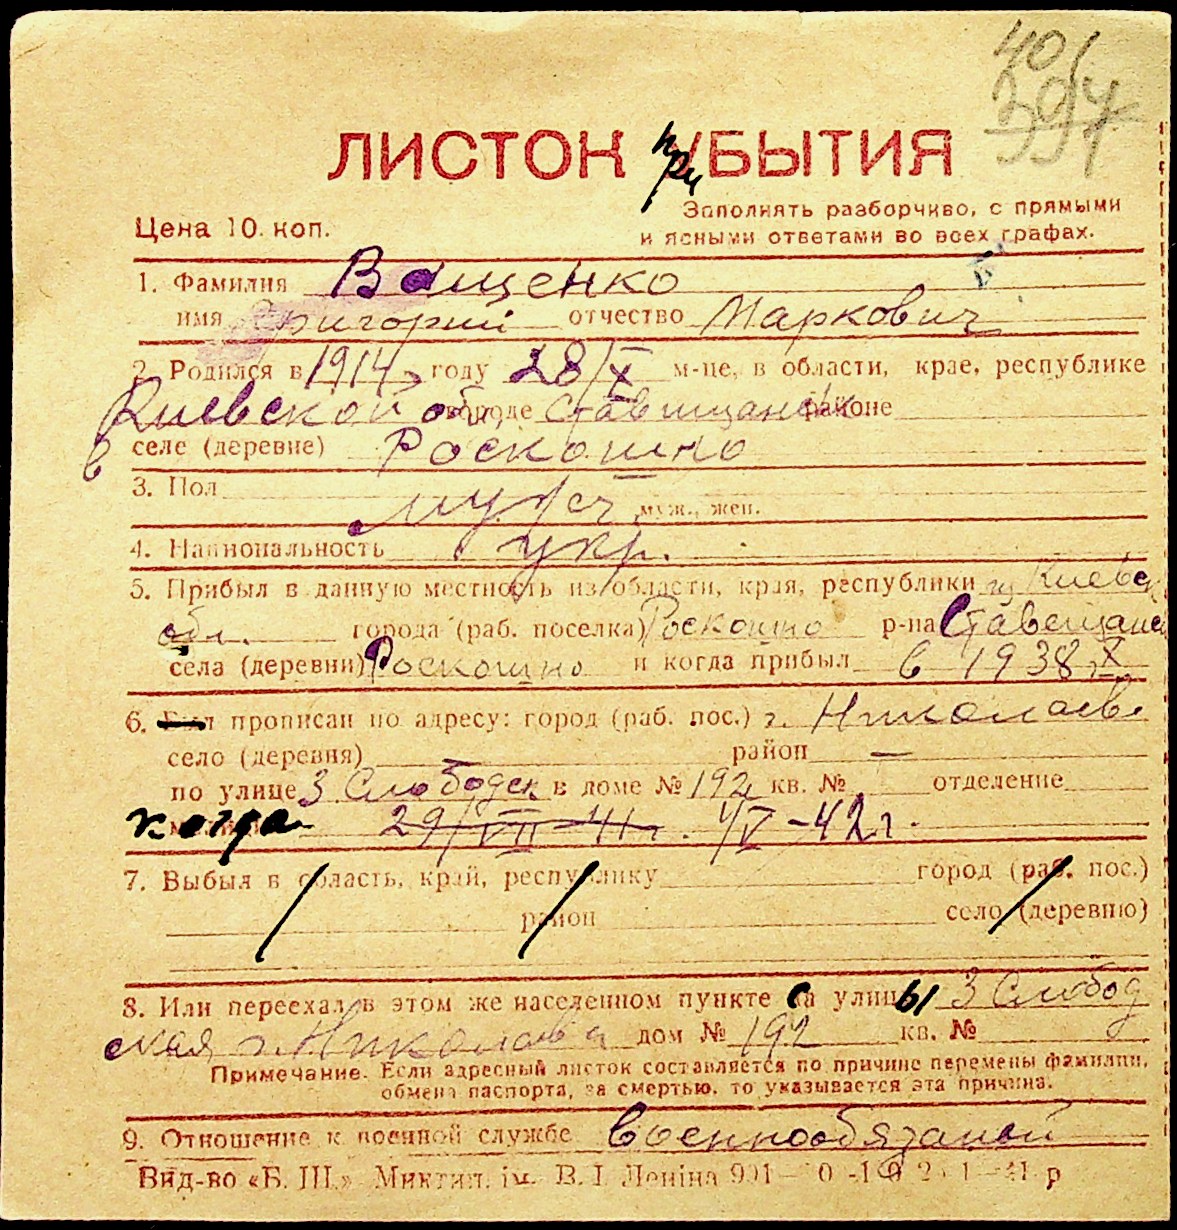 401
394
ЛИСТОК прибытия
Цена 10 коп.
Заполнять разборчиво, с прямыми
и ясными ответами во всех графах.
1. Фамилия Ващенко
имя Григорий отчество Маркович
2. Родился в 1914 году 28/X м-це, в области, крае, республике
Киевской обл, городе Ставищанск районе
в селе (деревне) Роскошно
3. Пол мужс муж., жен.
4. Национальность укр.
5. Прибыл в данную местность из области, края, республики из Киевск
обл. города (раб. поселка) Роскошно р-на Ставещанск
села (деревни) Роскошно и когда прибыл в 1938, X
6. Был прописан по адресу: город (раб. пос.) г. Николаев
село (деревня) — район —
по улице 3 Слободск в доме № 192 кв. № отделение
когда 29/VII-41г. 4/V-42г.
7. Выбыл в область, край, республику город (раб. пос.)
район село (деревню)
8. Или переехал в этом же населенном пункте са улицы 3 Слобод
ская г. Николаева дом № 192 кв. №
Примечание. Если адресный листок составляется по причине перемены фамилии,
обмена паспорта, за смертью, то указывается эта причина.
9. Отношение к военной службе военнообязаной
Вид-во «Б. Ш.» Миктип. ім. В. І. Леніна